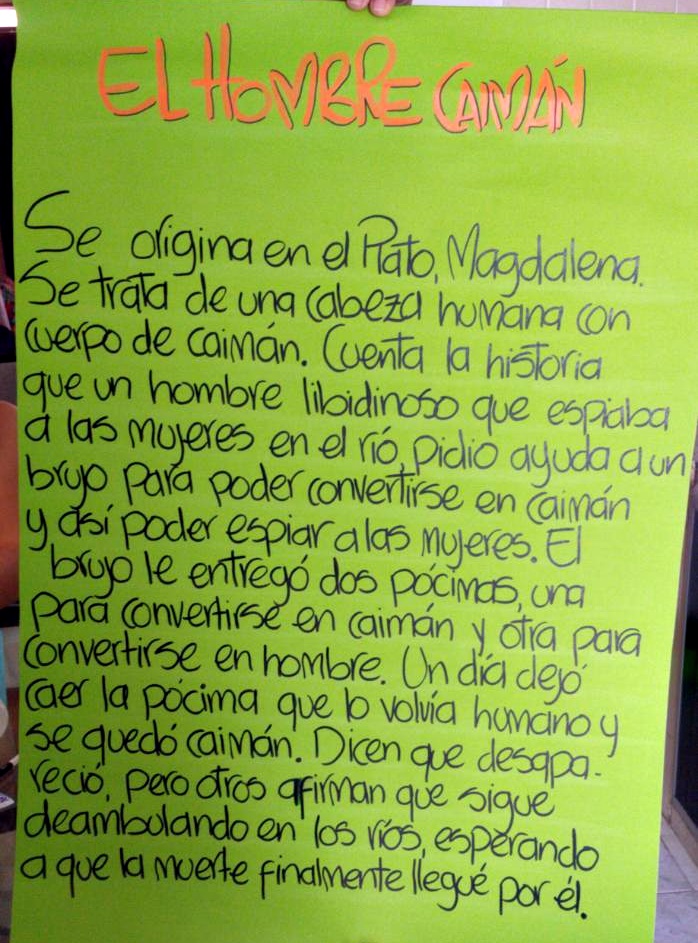 EL HOMBRE CAIMÁN
Se origina en el Plato, Magdalena.
Se trata de una cabeza humana con
cuerpo de caimán. Cuenta la historia
que un hombre libidinoso que espiaba
a las mujeres en el río, pidio ayuda a un
brujo para poder convertirse en caimán
y así poder espiar a las mujeres. El
brujo le entregó dos pócimas, una
para convertirse en caimán y otra para
convertirse en hombre. Un día dejó
caer la pócima que lo volvía humano y
se quedó caimán. Dicen que desapa-
reció, pero otros afirman que sigue
deambulando en los ríos, esperando
a que la muerte finalmente llegué por él.